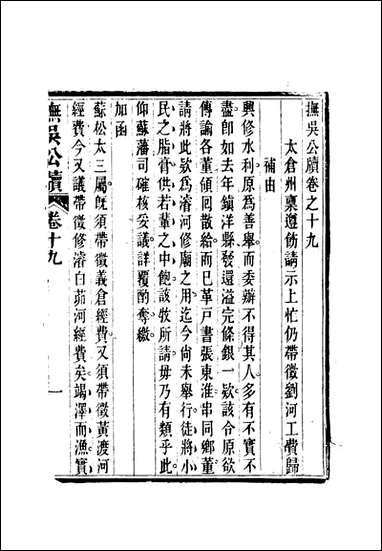 撫吳公牘卷之十九
太倉州稟遵飭請示上忙仍帶徵劉河工費歸
補由
興修水利原爲善舉而委辦不得其人多有不實不
盡卽如去年鎭洋縣發還溢完條銀一欵該令原欲
傳諭各董領回散給而已革戸書張東淮串同鄉董
請將此欵爲濬河修廟之用迄今尚未舉行徒將小
民之脂膏供若輩之中飽該牧所請毋乃有類乎此
仰蘇藩司確核妥議詳覆酌奪繳
加函
蘇松太三屬旣須帶徵義倉經費又須帶徵黃渡河
經費今又議帶徵修濬白茆河經費矣竭澤而漁實
撫吳公牘 卷十九 一